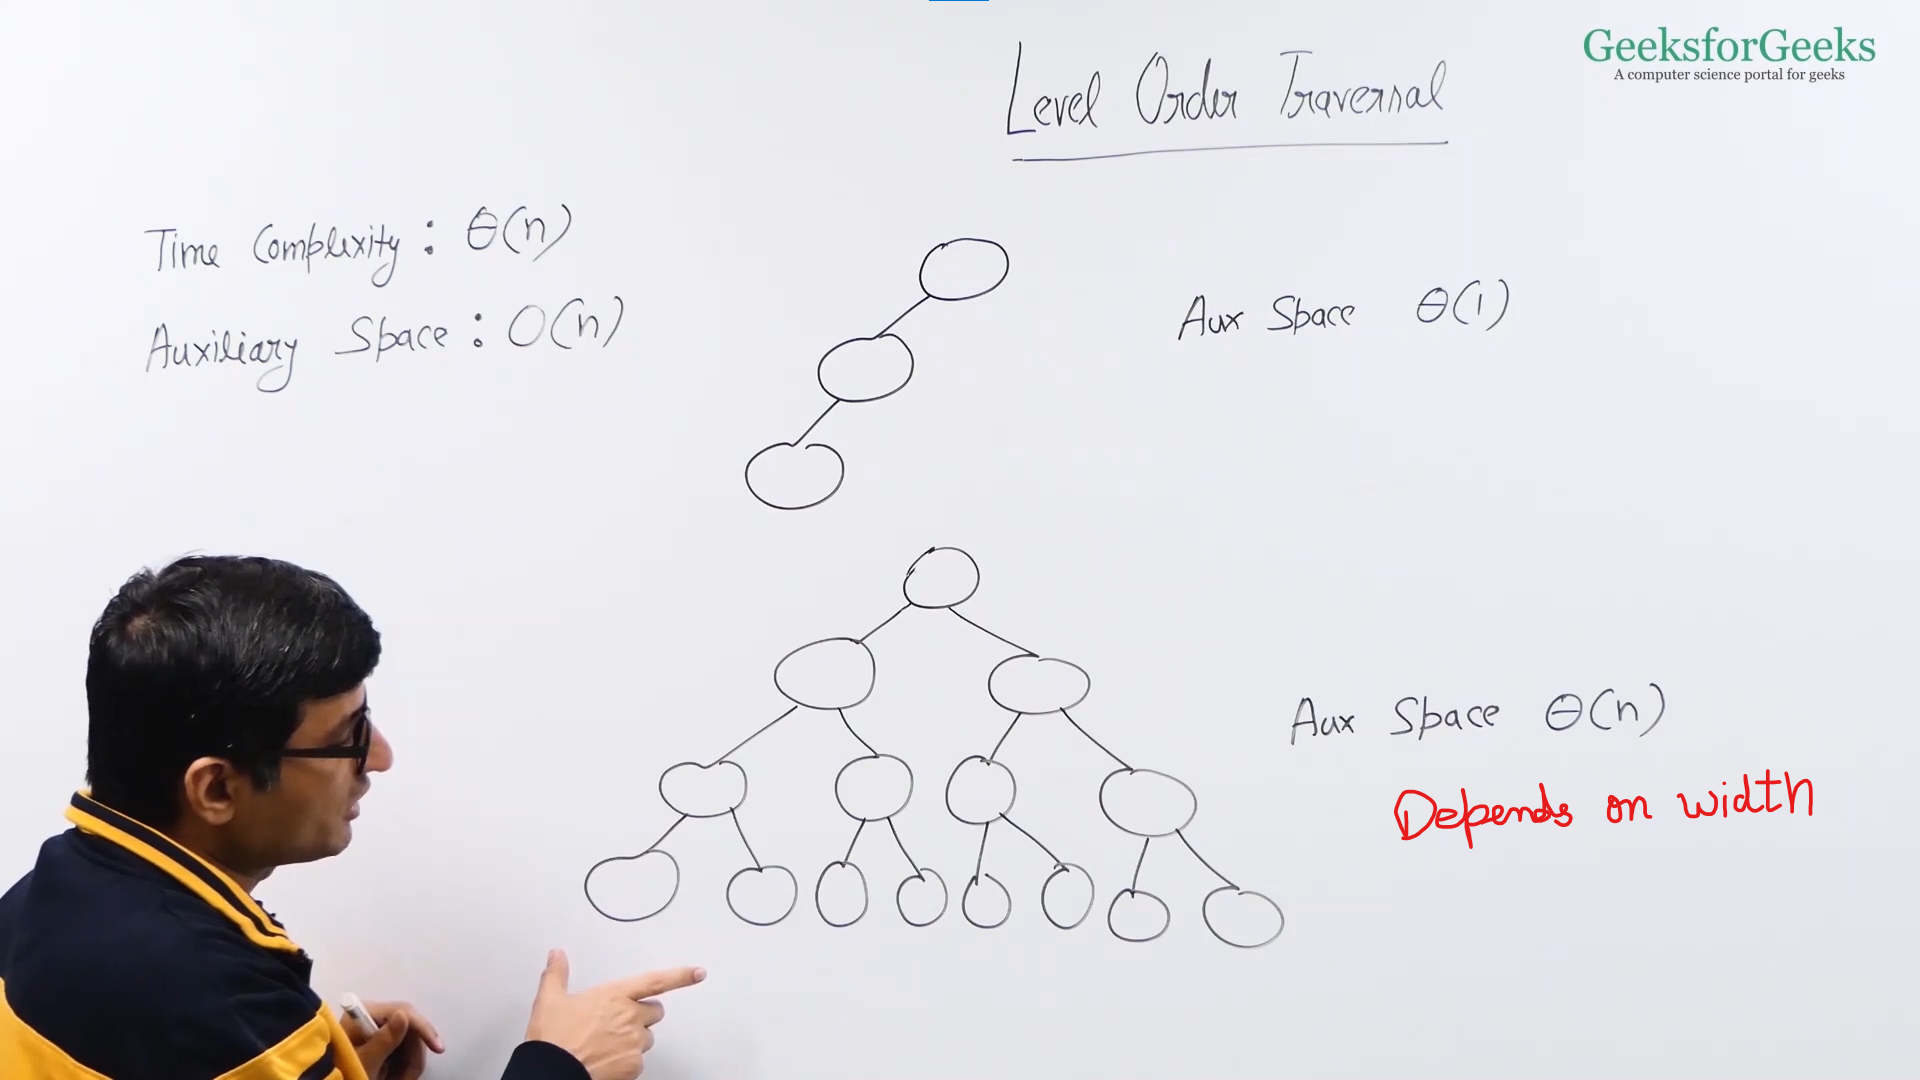 GeeksforGeeks
A computer science portal for geeks
Level Order Traversal
Time Complexity : Θ(n)
Auxiliary Space : O(n)
Aux Space Θ(1)
Aux Space Θ(n)
Depends on width